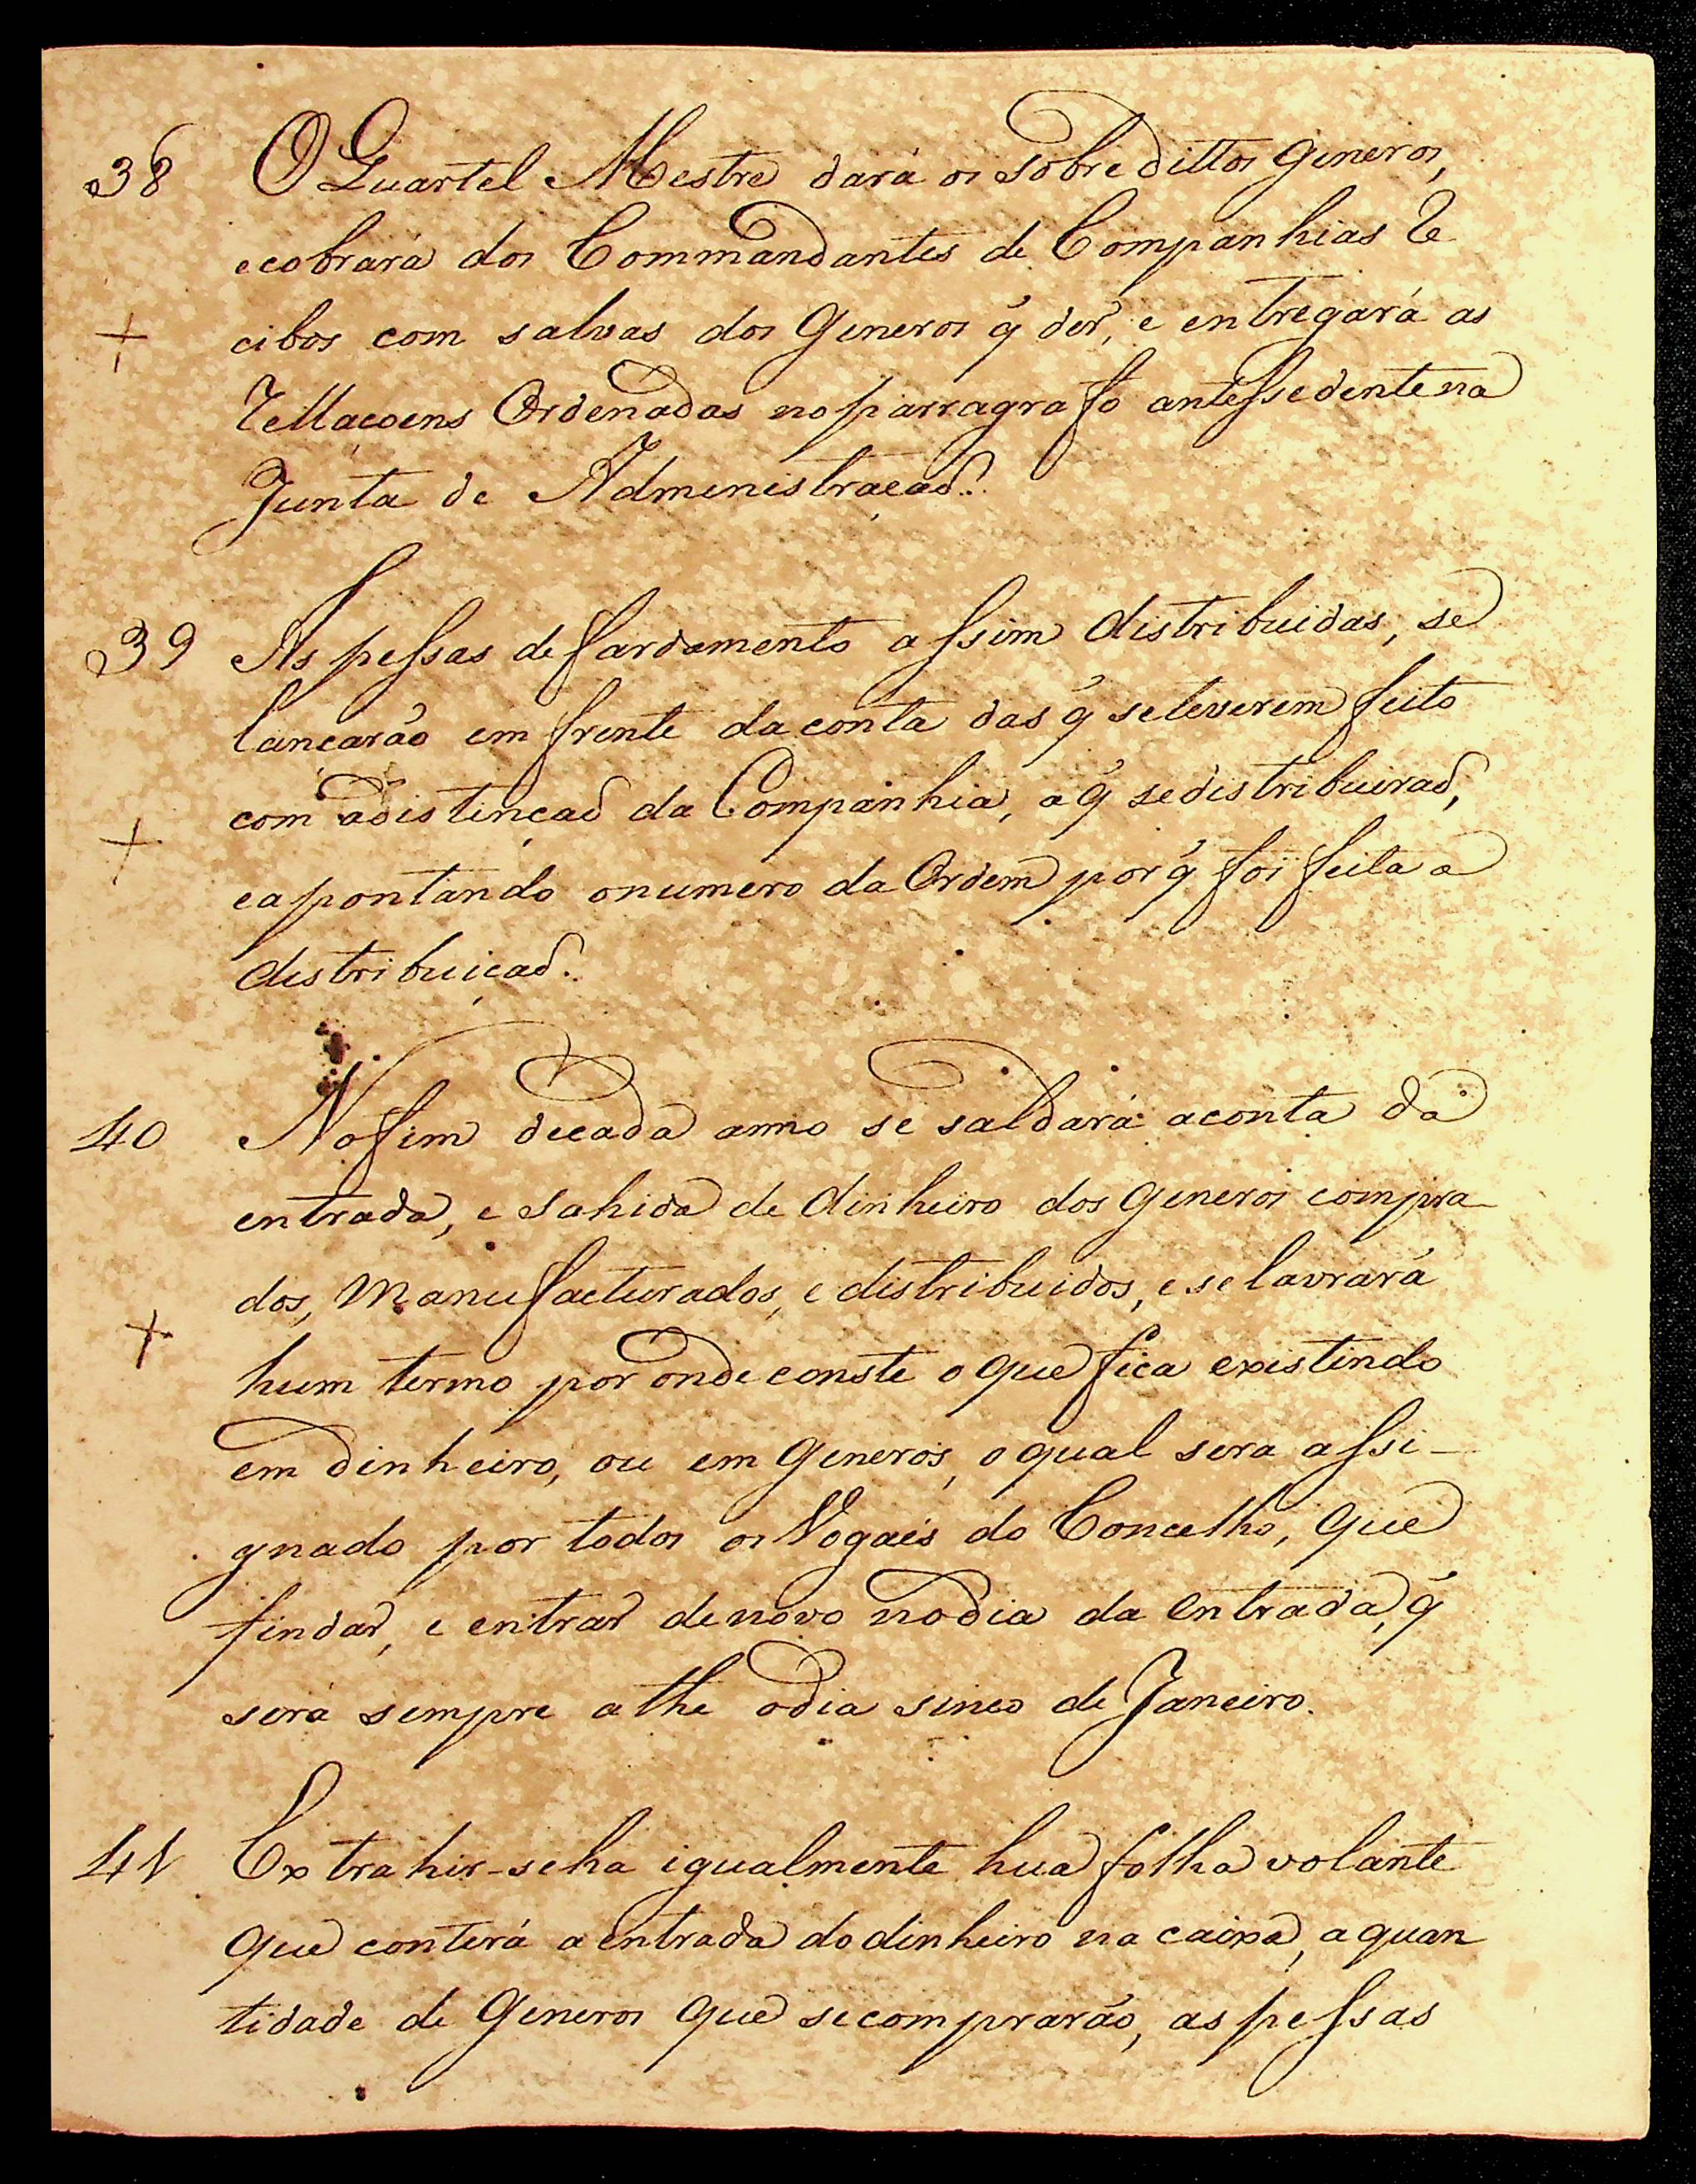 38 O Quartel Mestre dará os sobredittos generos,
e cobrará dos Commandantes de Companhias Re
+ cibos com salvas dos Generos q̃ der, e entregará as
Rellaçoens Ordenadas no parragrafo antessedente na
Junta de Admenistraçaõ.
39 As pessas de fardamento assim distribuidas, se
lançarão em frente da conta das q̃ se teverem feito
com adistinçaõ da Companhia, a q̃ se distribuiraõ,
+ e apontando o numero da Ordem por q̃ foi feita a
distribuiçaõ.
40 No fim de cada anno se saldará a conta da
entrada, e sahida de dinheiro dos generos compra
dos, manufacturados, e distribuidos, e se lavrará
+ hum termo por onde conste o que fica existindo
em dinheiro, ou em generos, o qual sera assi-
gnado por todos os Vogais do Concelho, que
findar, e entrar de novo no dia da entrada, q̃
será sempre athe o dia sinco de Janeiro.
41 Extrahir-seha igualmente hua folha volante
que conterá a entrada do dinheiro na caixa, a quan
tidade de Generos que se comprarão, as pessas